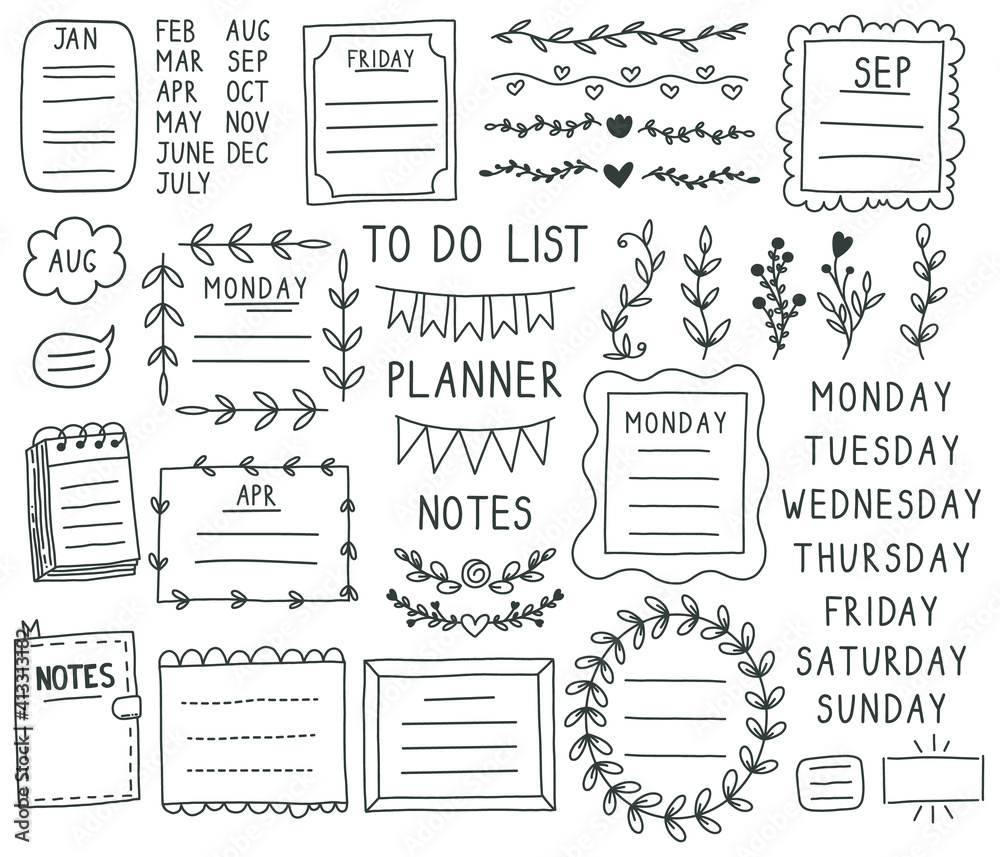 JAN
FEB AUG
MAR SEP
APR OCT
MAY NOV
JUNE DEC
JULY
FRIDAY
SEP
AUG
MONDAY
TO DO LIST
PLANNER
NOTES
APR
MONDAY
MONDAY
TUESDAY
WEDNESDAY
THURSDAY
FRIDAY
SATURDAY
SUNDAY
NOTES
Adobe Stock | #413313182